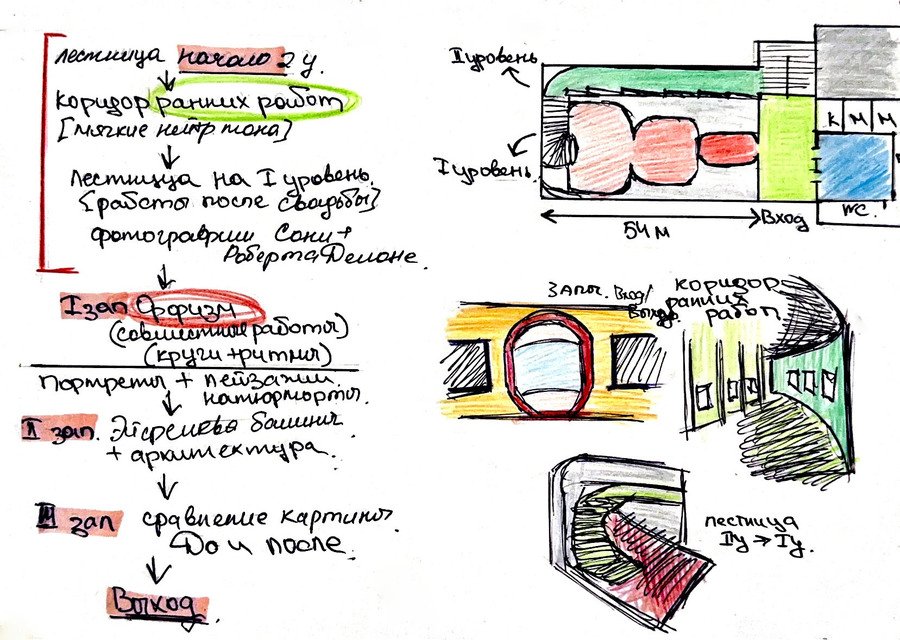 лестница начало 2 у.
коридор ранних работ
[мягкие нейтр тона]
лестница на I уровень.
[работы после свадьбы]
фотографии Сони +
Роберта Делоне.
I зал Орфизм
(совместные работы)
(круги + ритмы)
Портреты + пейзажи.
натюрморты.
II зал. Эйфелева башня
+ архитектура.
III зал сравнение картины
До и после.
Выход.
II уровень
I уровень.
54 м
Вход
К М М
WC.
Вход/
Выход
коридор
ранних
работ
лестница
IIу → Iу.